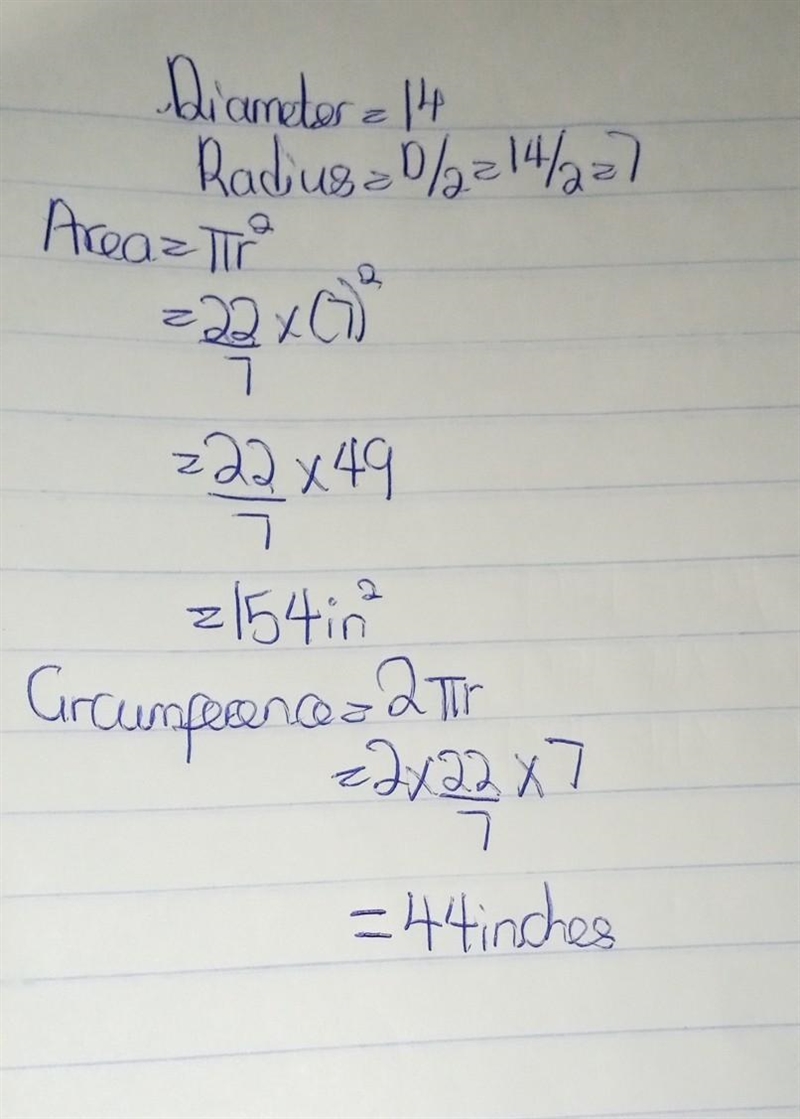 Diameter = 14
Radius = D/2 = 14/2 = 7
Area = πr²
= 22/7 × (7)²
= 22/7 × 49
= 154in²
Circumference = 2πr
= 2 × 22/7 × 7
= 44inches